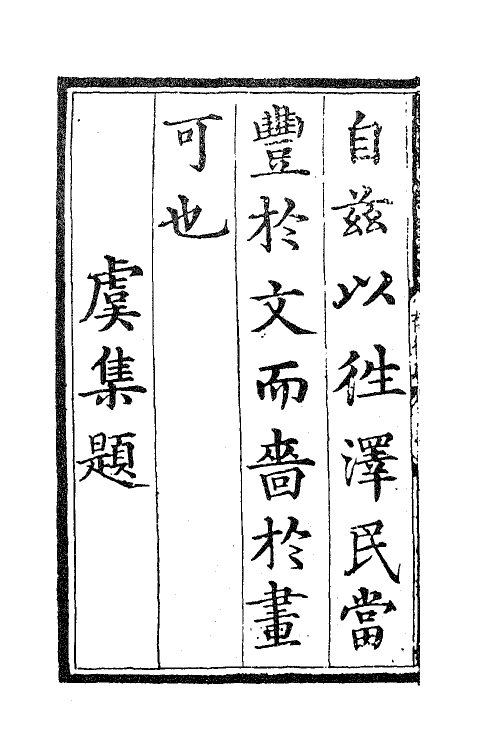 自兹以徃澤民當
豐於文而嗇於畫
可也
虞集題